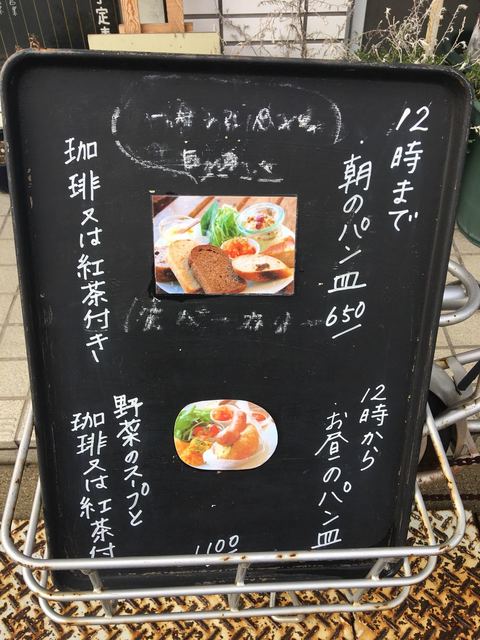 12時まで
・朝のパン皿
650
珈琲又は紅茶付き
12時から
・お昼のパン皿
1100
野菜のスープと
珈琲又は紅茶付